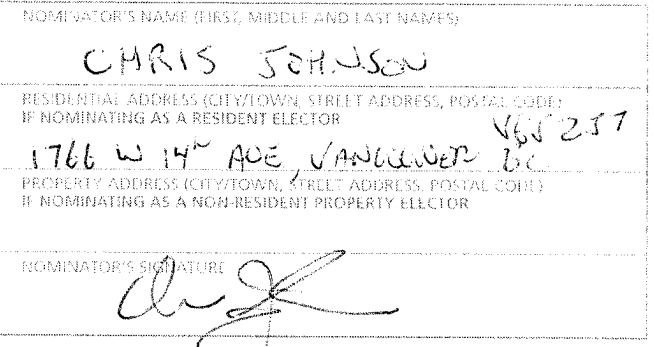 NOMINATOR'S NAME (FIRST, MIDDLE AND LAST NAMES)
CHRIS JOHNSON
RESIDENTIAL ADDRESS (CITY/TOWN, STREET ADDRESS, POSTAL CODE)
IF NOMINATING AS A RESIDENT ELECTOR
V6J 2J7
1766 W 14th AVE, VANCOUVER BC
PROPERTY ADDRESS (CITY/TOWN, STREET ADDRESS, POSTAL CODE)
IF NOMINATING AS A NON-RESIDENT PROPERTY ELECTOR
NOMINATOR'S SIGNATURE